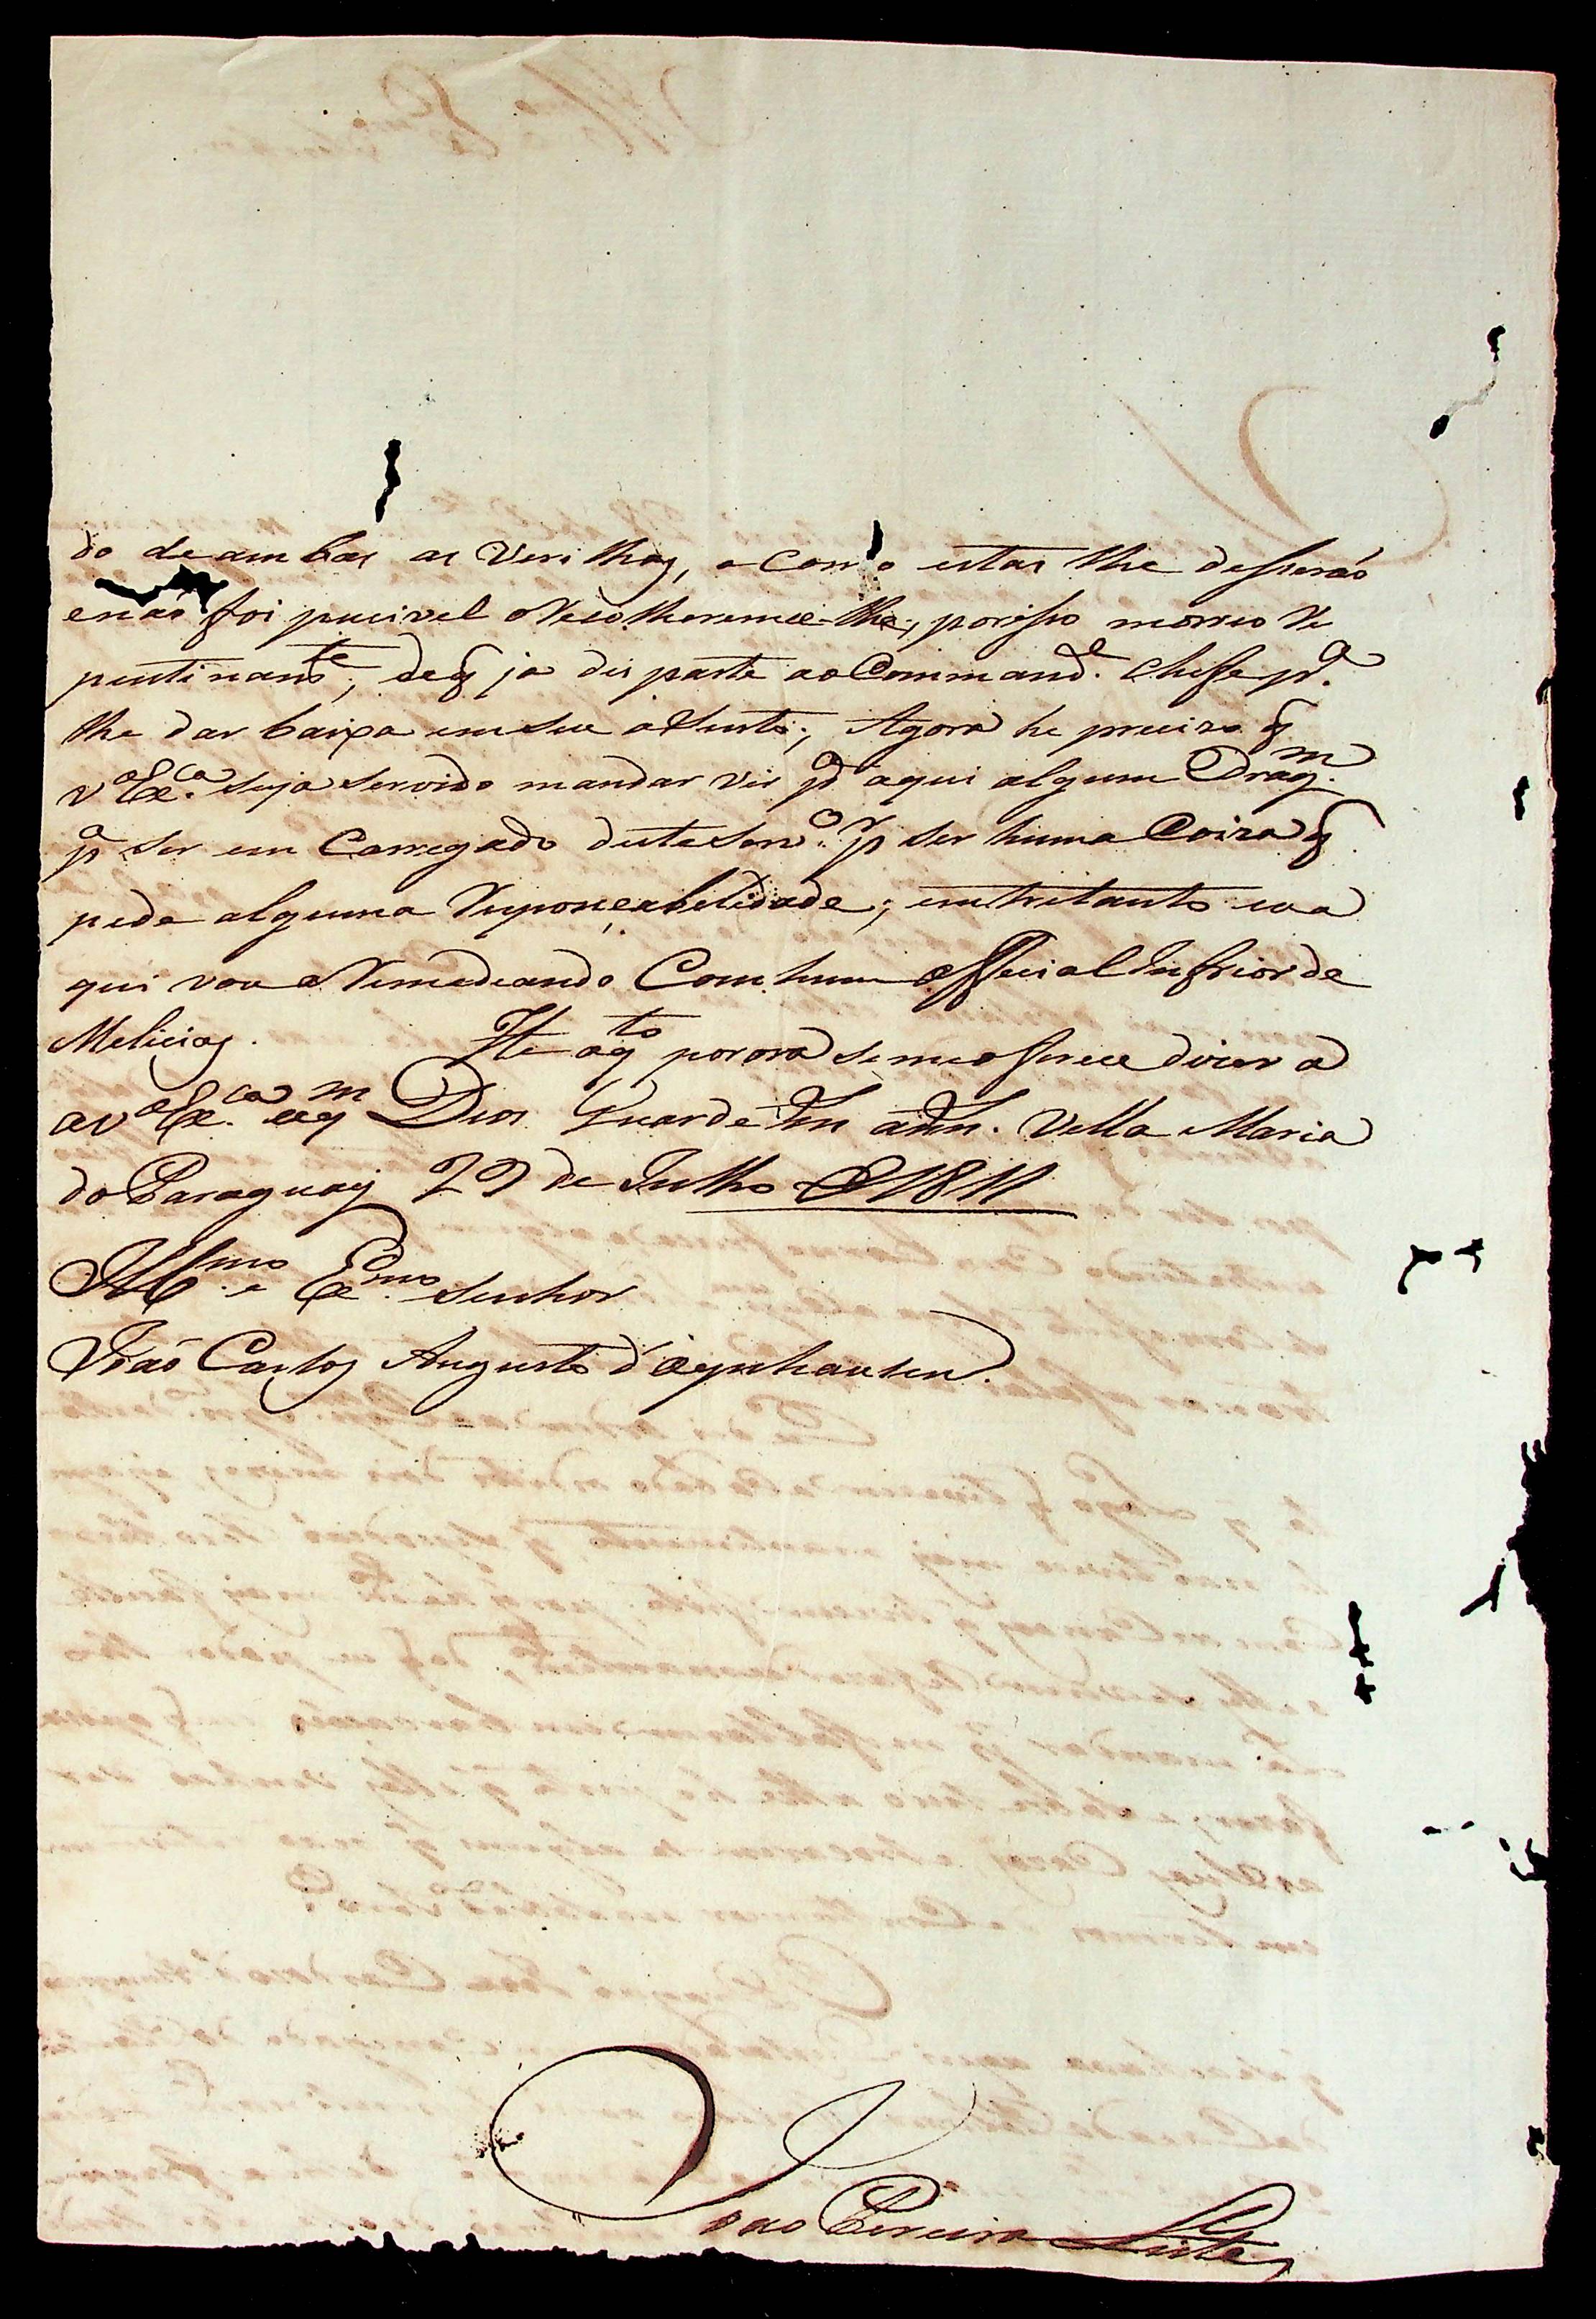 do de ambas as Verilhas, e Como estas lhe desserão
enão foi pucivel o Recolheremce-lhe; porisso morreo Re
pentinam.te, deq̃ ja dis parte ao Command.e Cheffe p.a
lhe dar baixa em seu aSento; Agora he precizo q̃
v.a Ex.ca seja servido mandar vir p.a aqui algum Drag.m
p.a ser em Carregado deste serv.o p.r ser huma Coiza q̃
pede alguma Responçabelidade; entretanto eu a
qui vou a Remedeando Com hum official Inferior de
Melicias. He oq.to por ora se me offerece dizer a
a v.a Ex.ca aq.m Deos Guarde m.s ann.s. Villa Maria
do Paraguay 29 de Julho de 1811
Ill.mo e Ex.mo Senhor
João Carlos Augusto d'Oeynhausen.
João Pereira Leite